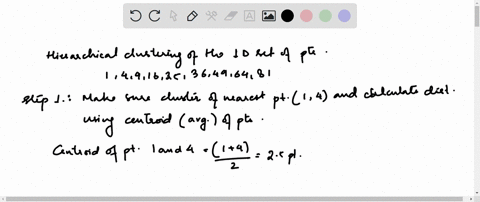 Hierarchical clustering of the 1D set of pts.
1, 4, 9, 16, 25, 36, 49, 64, 81
Step 1.: Make sure cluster of nearest pt. (1, 4) and calculate dist.
using centroid (avg.) of pts.
Centroid of pt. 1 and 4 = (1+4)/2 = 2.5 pt.